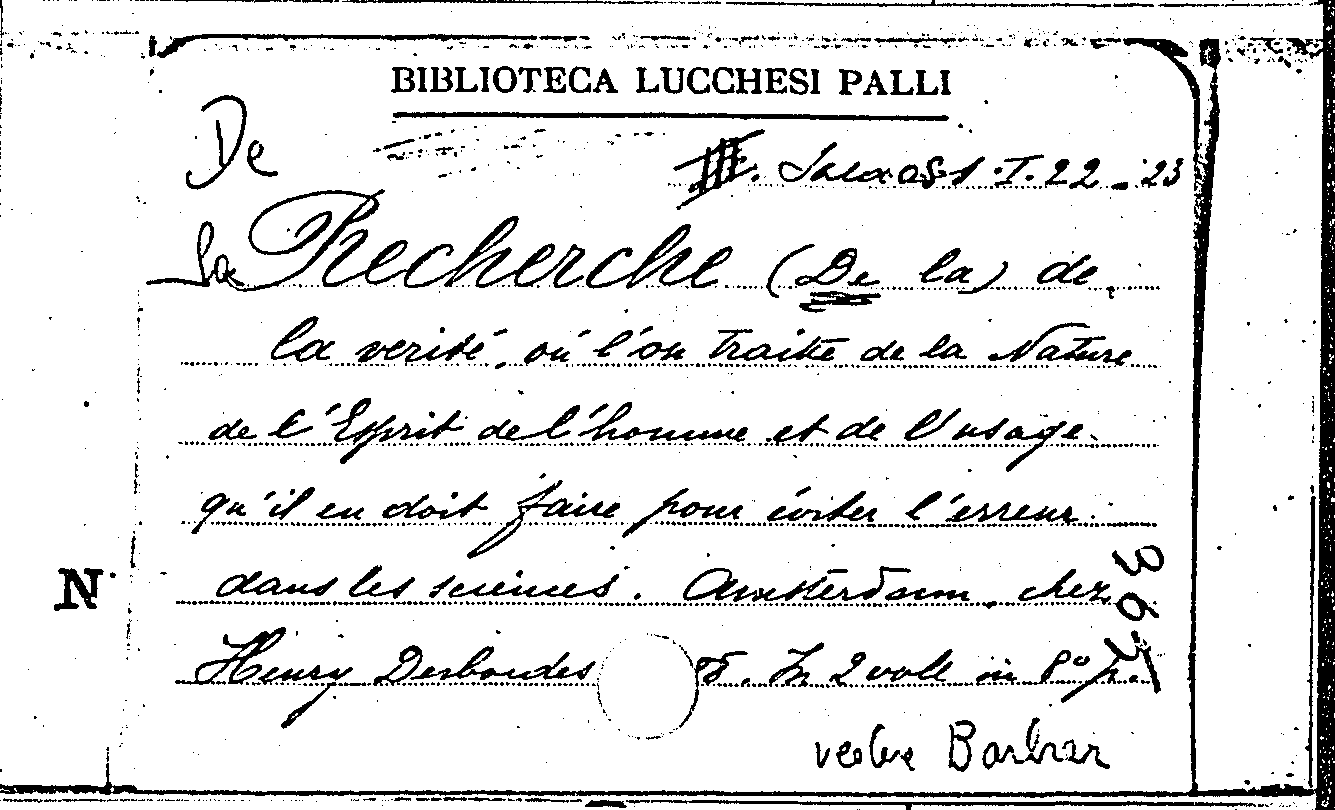 BIBLIOTECA LUCCHESI PALLI
De
I.22-23
la Recherche (De la) de
la verité, où l'on traite de la Nature
de l'Esprit de l'homme et de l'usage
qu'il en doit faire pour éviter l'erreur
dans les sciences. Amsterdam, chez
Henry Desbordes In 2 voll in 8° p.
N
367